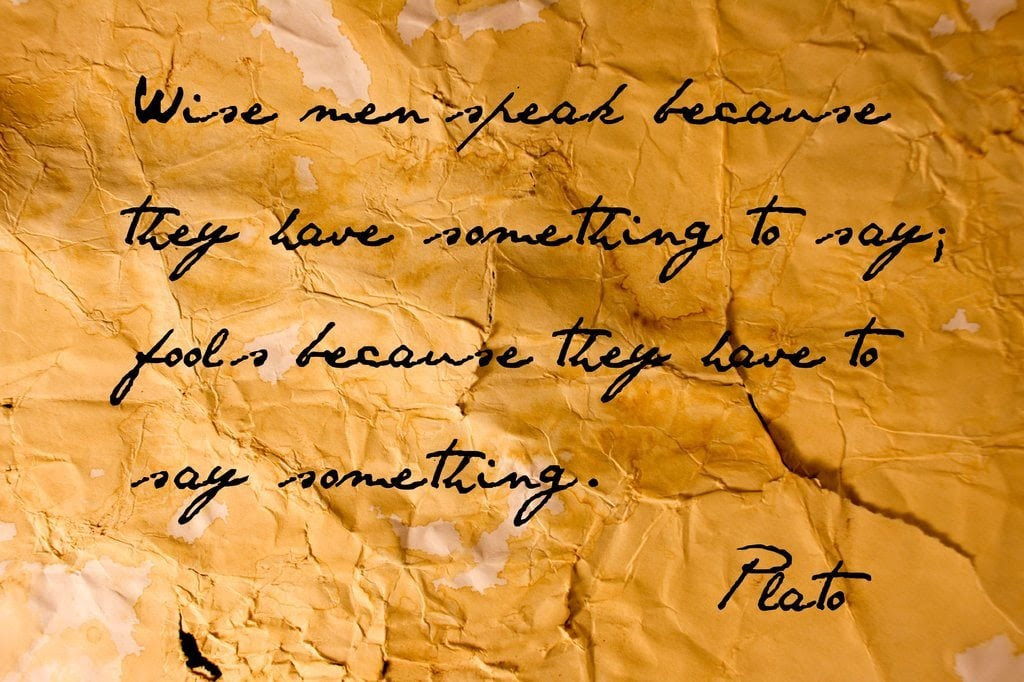 Wise men speak because
they have something to say;
fools because they have to
say something.
Plato